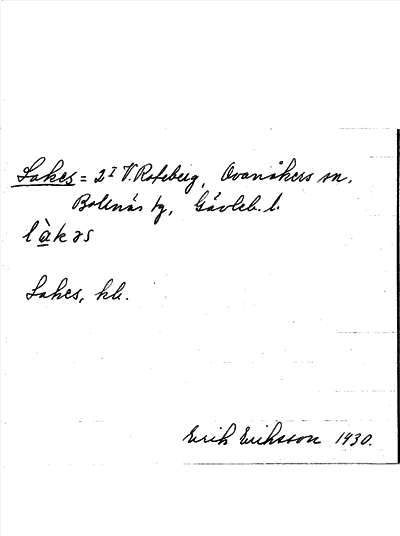 Lakes = 2¹ V. Roteberg, Ovanåkers sn.
Bollnäs tg, Gävleb. l.
làkəs
Lakes, kb.
Erik Eriksson 1930.